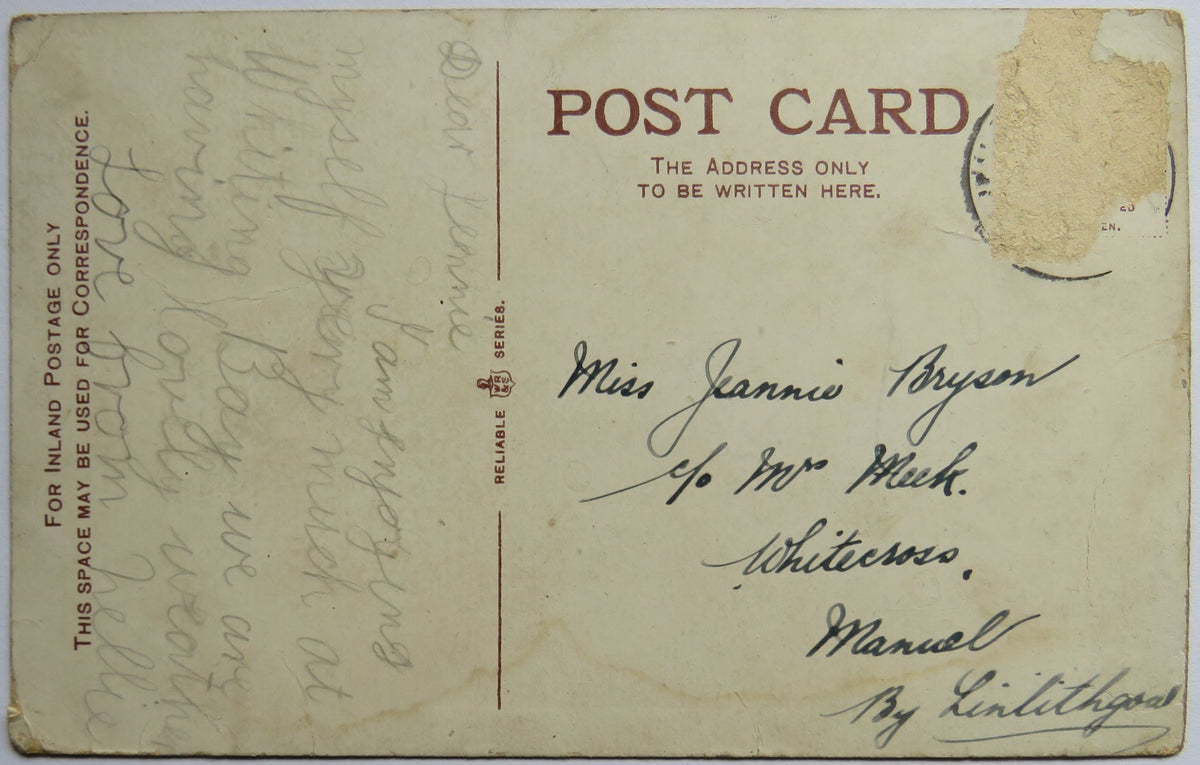 POST CARD
THE ADDRESS ONLY
TO BE WRITTEN HERE.
FOR INLAND POSTAGE ONLY
THIS SPACE MAY BE USED FOR CORRESPONDENCE.
RELIABLE WR&S SERIES.
Dear Jeannie
I am enjoying
myself very much at
Whiting Bay we are
having lovely weather
Love from Nellie
Miss Jeannie Bryson
c/o Mrs Meek.
Whitecross.
Manuel
By Linlithgow